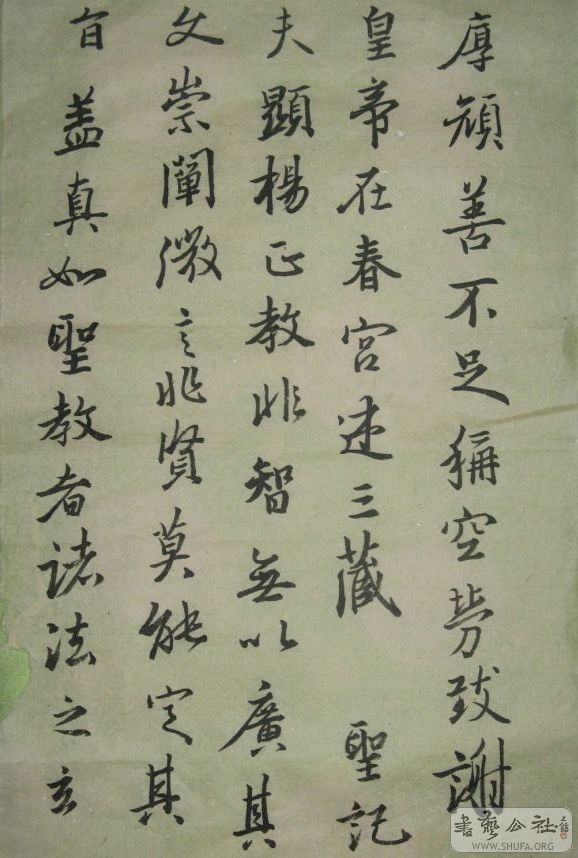 厚顔善不足稱空勞致謝
皇帝在春宮述三藏 聖記
夫顯楊正教非智無以廣其
文崇闡微言非賢莫能定其
旨盖真如聖教者諸法之玄
書藝公社
WWW.SHUFA.ORG